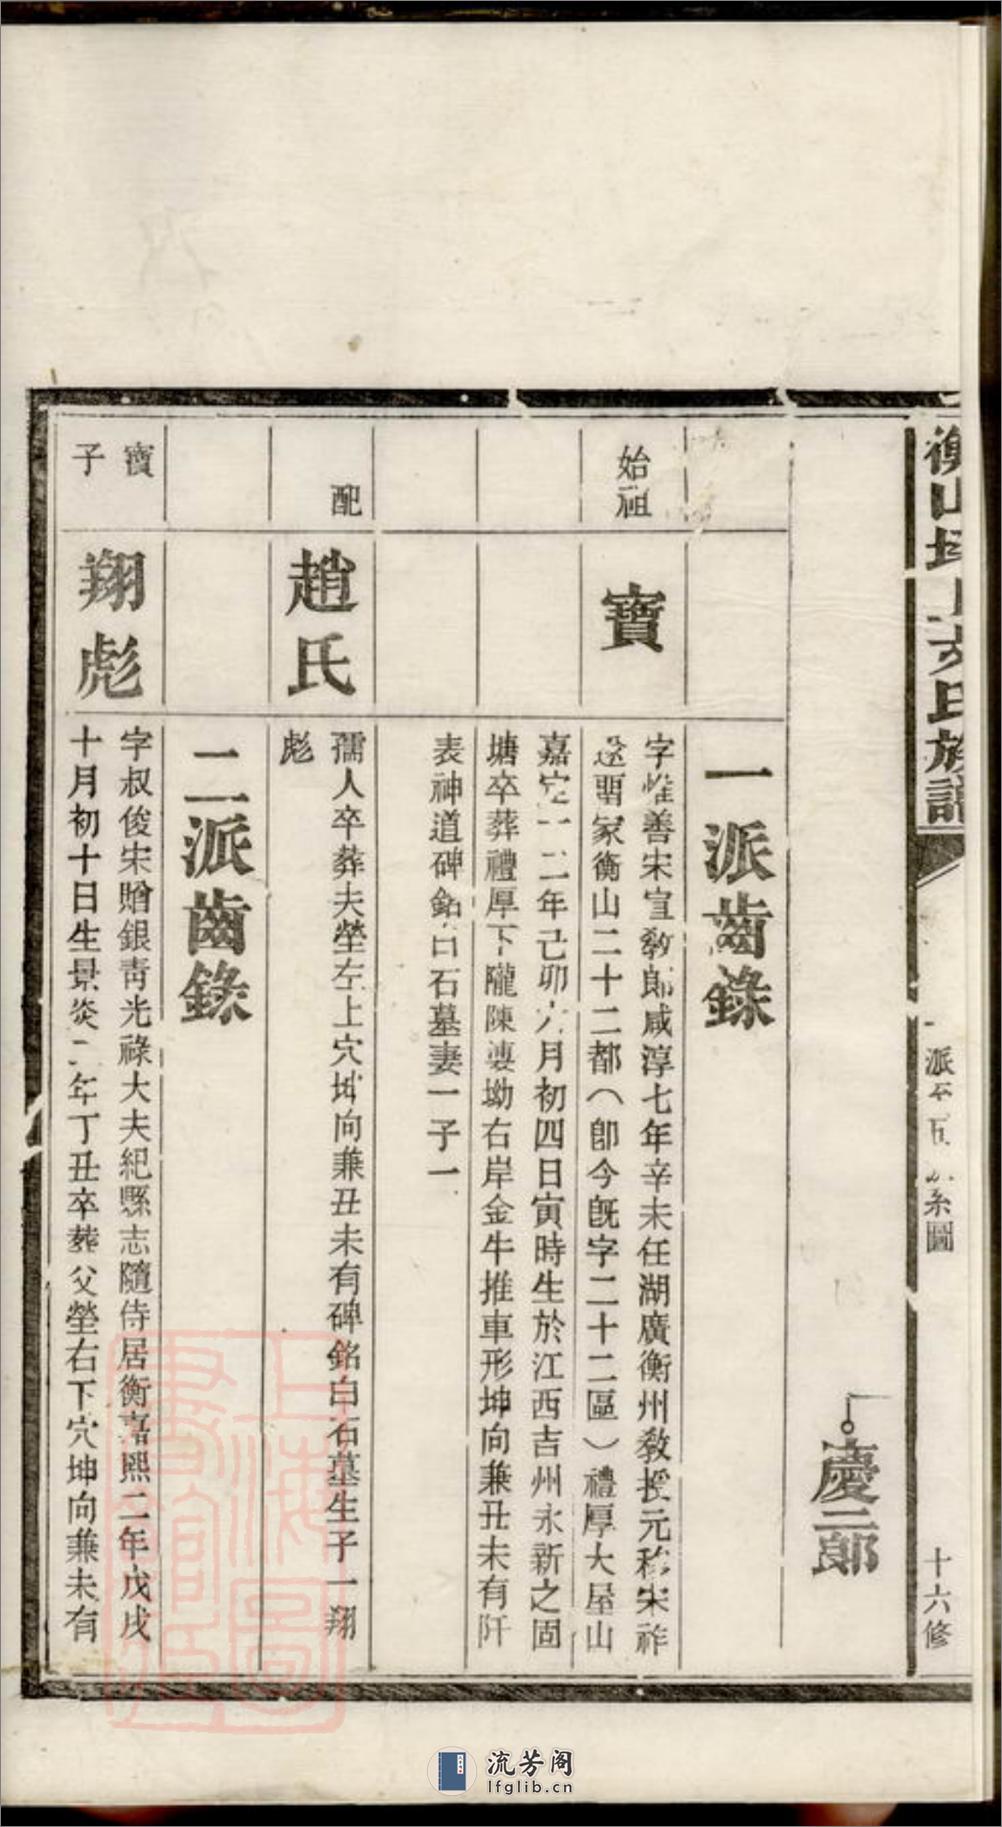 衡山 氏族譜
派 五 系圖
十六修
慶二郎
一派齒錄
始祖
寶
字惟善宋宣教郎咸淳七年辛未任湖廣衡州教授元移宋祚
遂留家衡山二十二都（卽今旣字二十二區）禮厚大屋山
嘉定十二年己卯六月初四日寅時生於江西吉州永新之固
塘卒葬禮厚下隴陳 坳右岸金牛推車形坤向兼丑未有阡
表神道碑銘白石墓妻一子一
配
趙氏
孺人卒葬夫塋左上穴坤向兼丑未有碑銘白石墓生子一翔
彪
二派齒錄
寶
子
翔彪
字叔俊宋贈銀靑光祿大夫紀縣志隨侍居衡嘉熙二年戊戌
十月初十日生景炎二年丁丑卒葬父塋右下穴坤向兼未有
上海圖書館藏
流芳阁
lfglib.cn